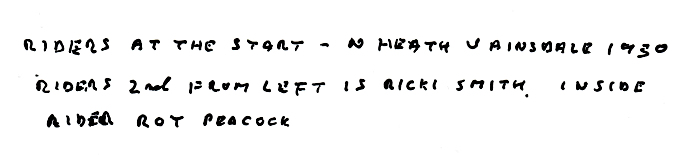 RIDERS AT THE START - N HEATH V AINSDALE 1950
RIDERS 2nd FROM LEFT IS RICKI SMITH. INSIDE
RIDER ROY PEACOCK